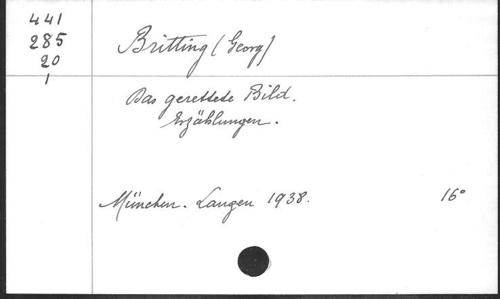 441
285
20
1
Britting (Georg)
Das gerettete Bild.
Erzählungen.
München. Langen 1938.
16°